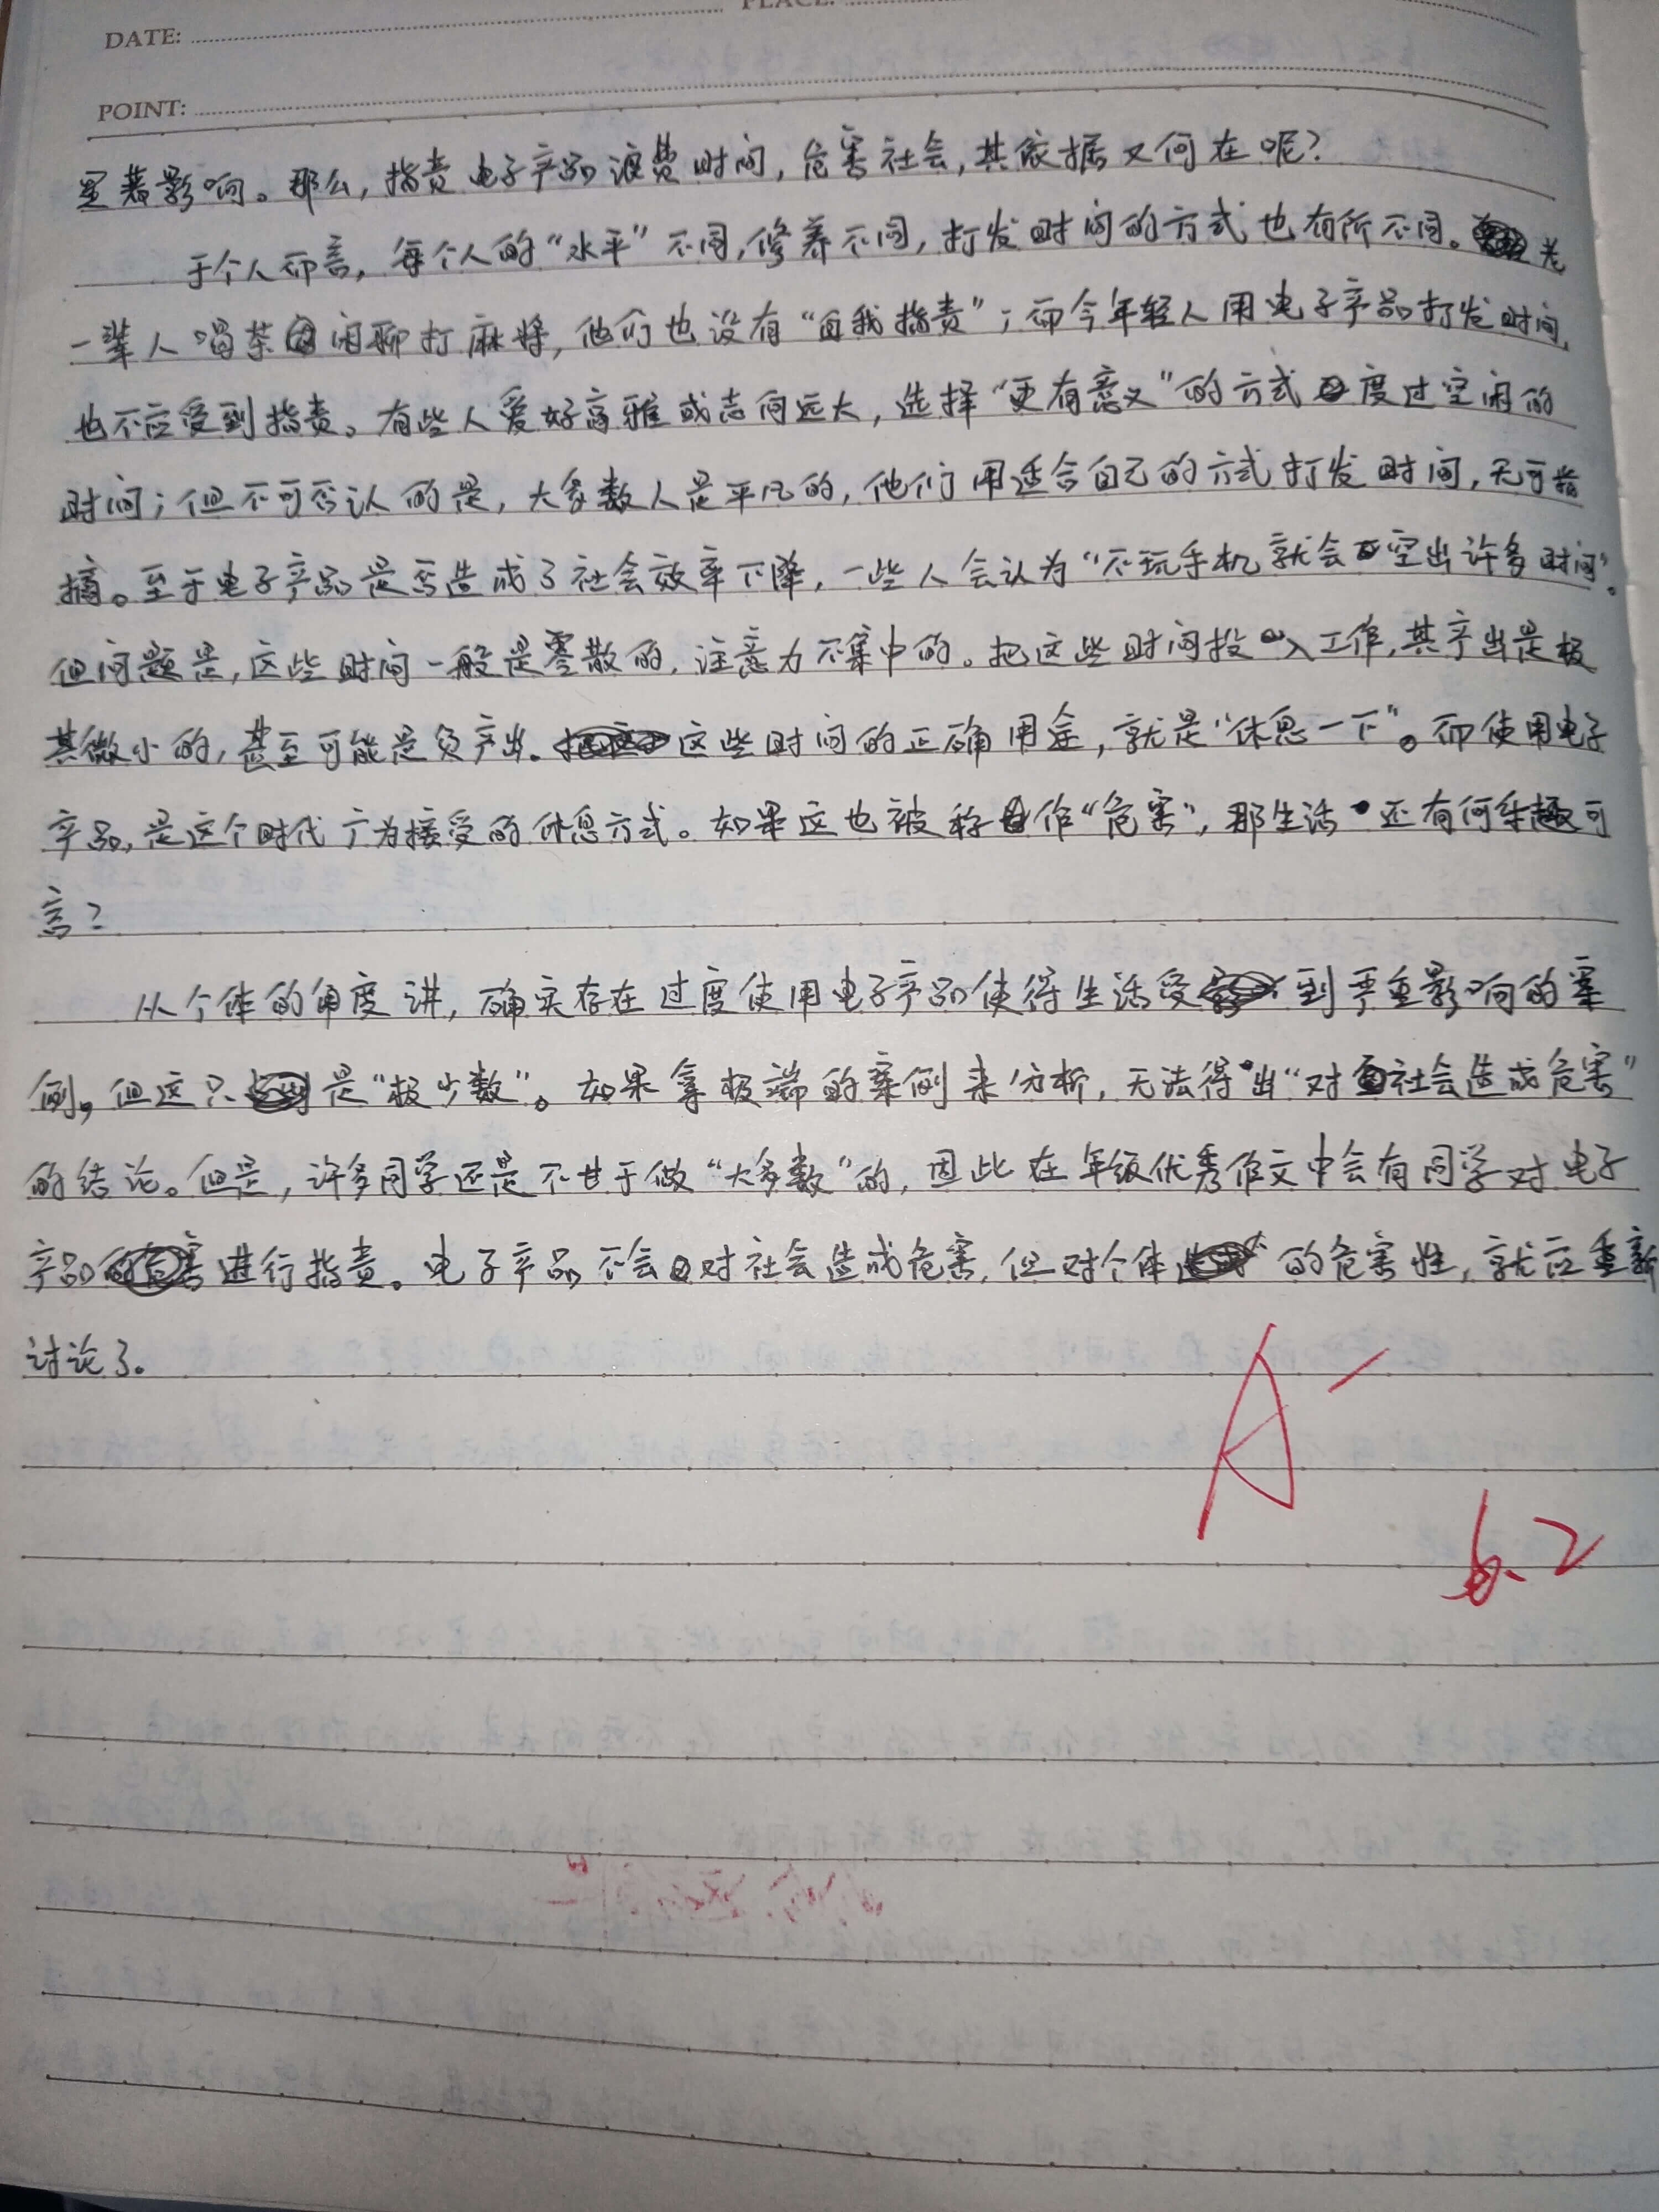 PLACE:
DATE:
POINT:
显著影响。那么，指责电子产品浪费时间，危害社会，其依据又何在呢？
于个人而言，每个人的“水平”不同，修养不同，打发时间的方式也有所不同。老
一辈人喝茶闲聊打麻将，他们也没有“自我指责”；而今年轻人用电子产品打发时间，
也不应受到指责。有些人爱好高雅或志向远大，选择“更有意义”的方式度过空闲的
时间；但不可否认的是，大多数人是平凡的，他们用适合自己的方式打发时间，无可指
摘。至于电子产品是否造成了社会效率下降，一些人会认为“不玩手机就会空出许多时间”。
但问题是，这些时间一般是零散的，注意力不集中的。把这些时间投入工作，其产出是极
其微小的，甚至可能是负产出。这些时间的正确用途，就是“休息一下”。而使用电子
产品，是这个时代广为接受的休息方式。如果这也被称作“危害”，那生活还有何乐趣可
言？
从个体的角度讲，确实存在过度使用电子产品使得生活受到严重影响的案
例，但这只是“极少数”。如果拿极端的案例来分析，无法得出“对社会造成危害”
的结论。但是，许多同学还是不甘于做“大多数”的，因此在年级优秀作文中会有同学对电子
产品进行指责。电子产品不会对社会造成危害，但对个体的危害性，就应重新
讨论了。
A-
6.2